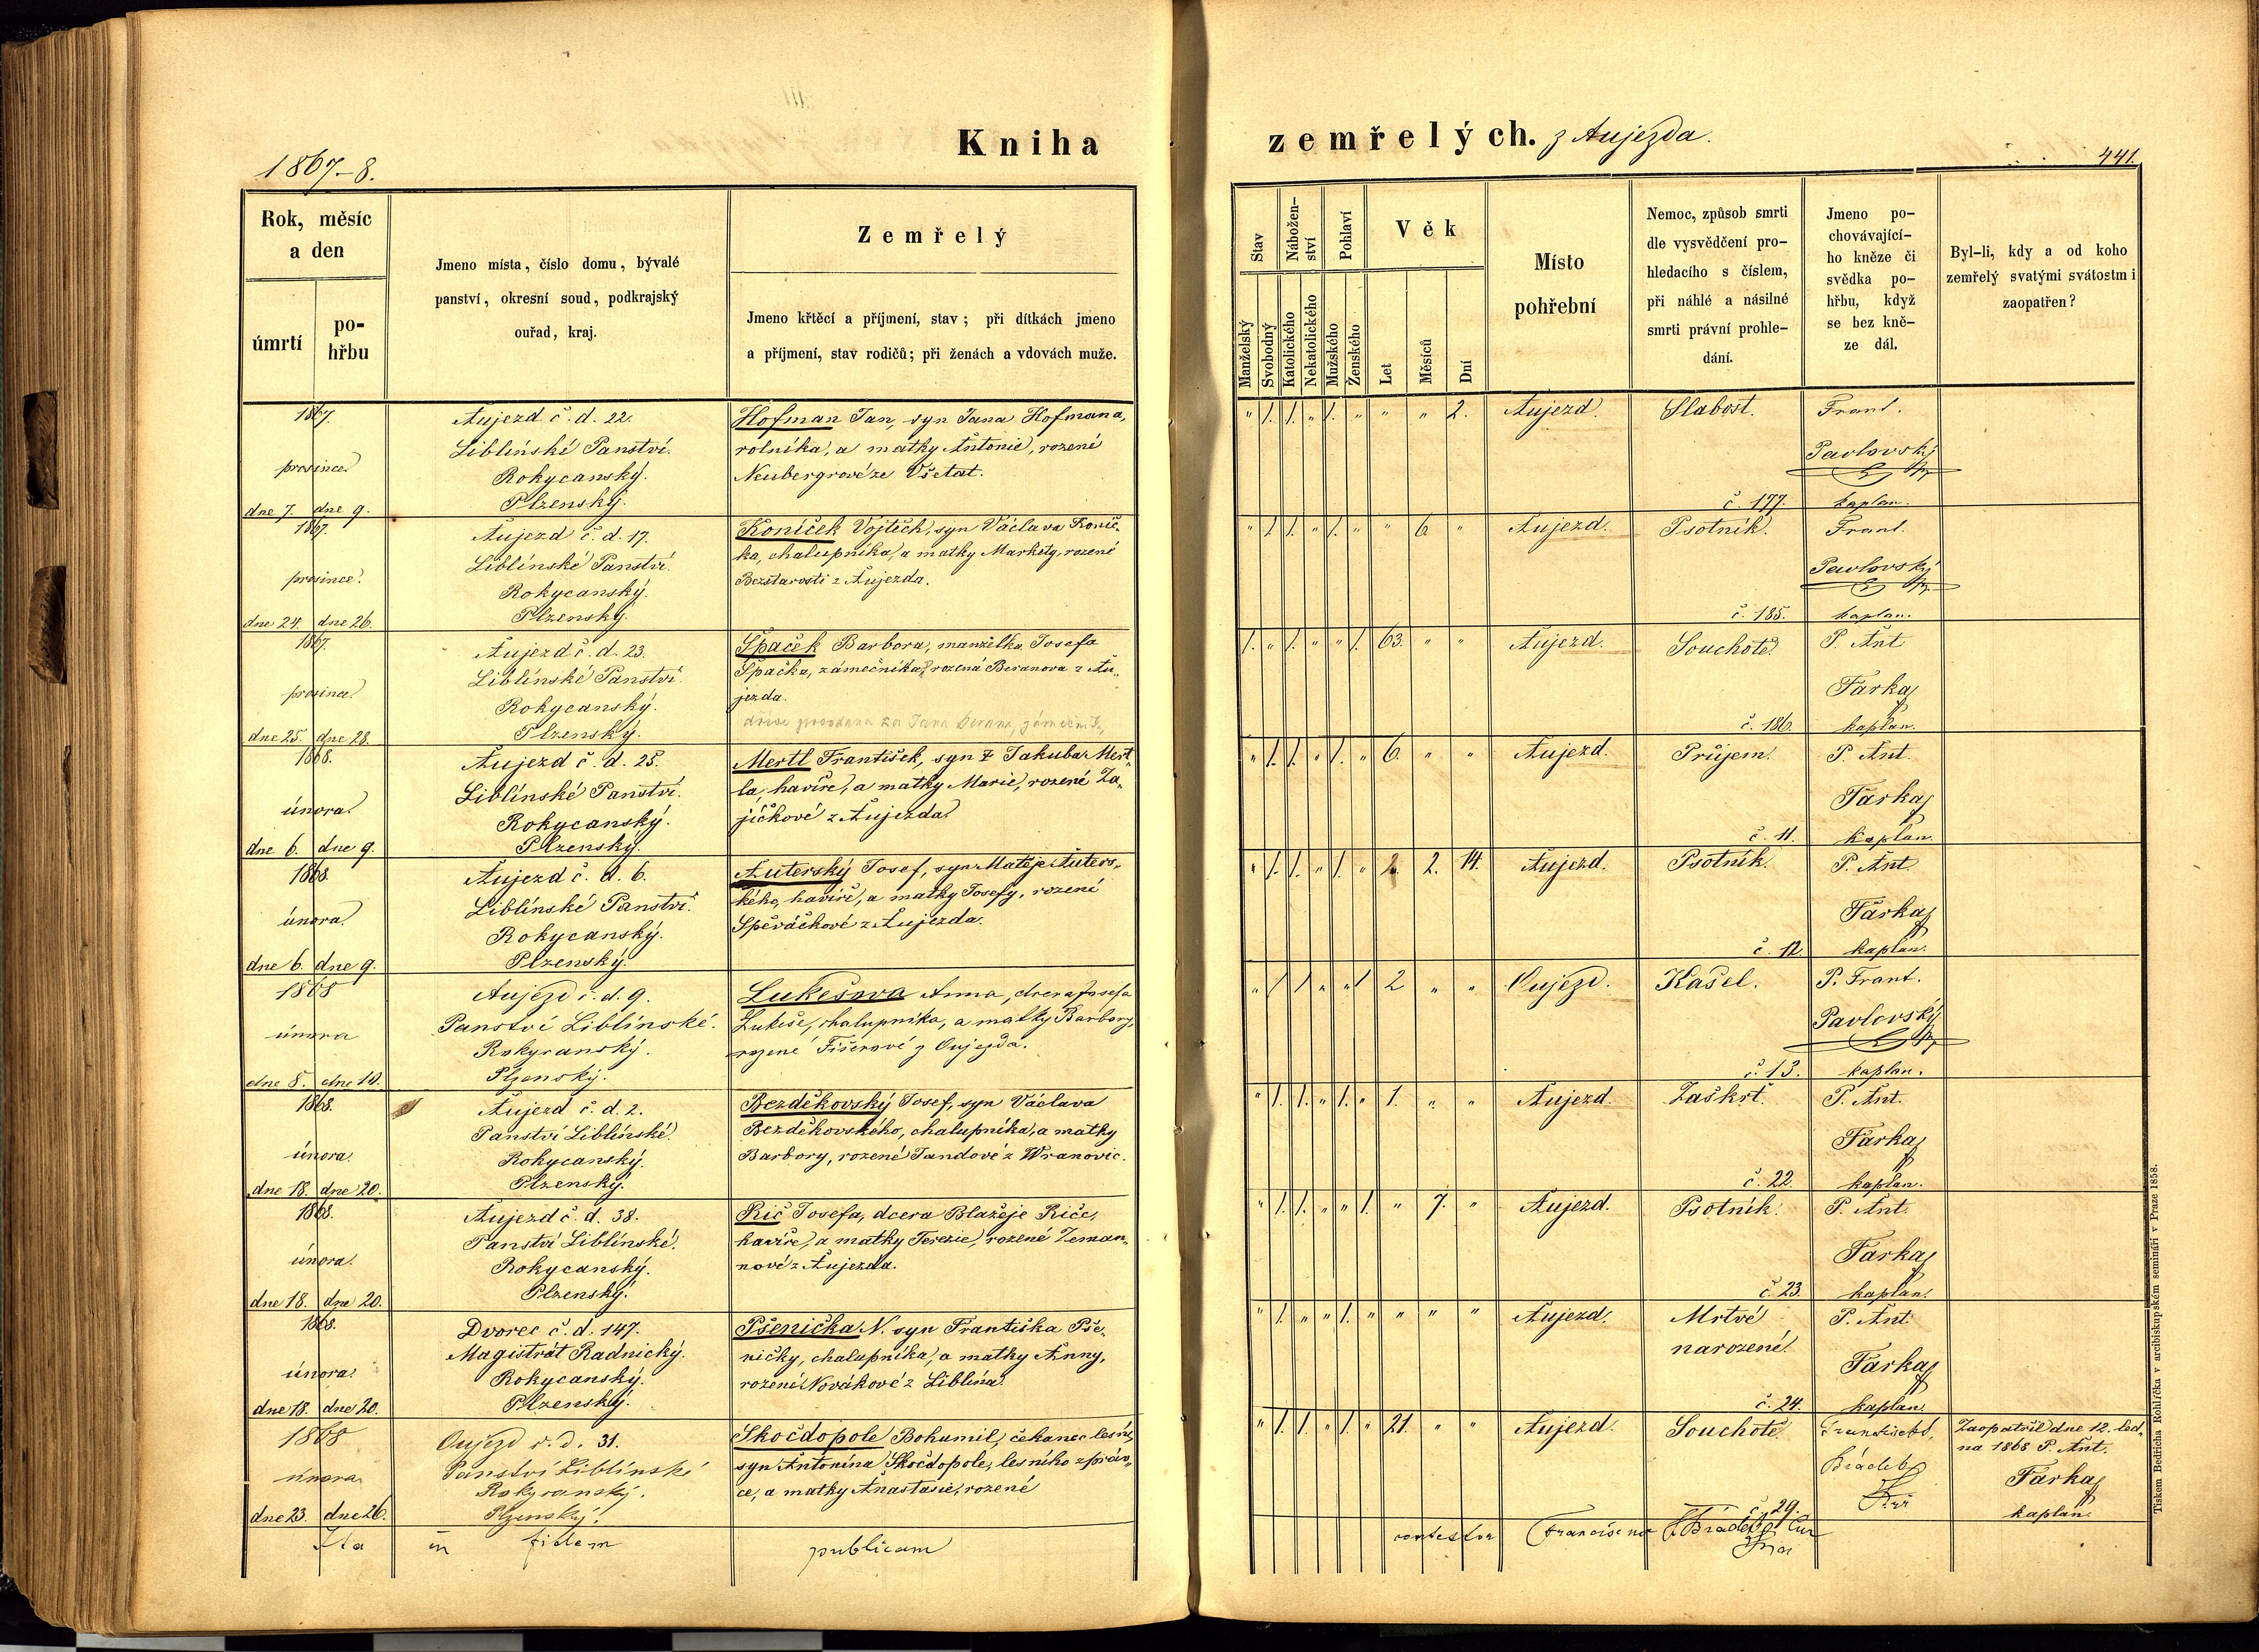 1867–8.
Kniha
zemřelých. z Aujezda.
441.
Rok, měsíc
a den
úmrtí
po-
hřbu
Jmeno místa, číslo domu, bývalé
panství, okresní soud, podkrajský
ouřad, kraj.
Zemřelý
Jmeno křtěcí a příjmení, stav; při dítkách jmeno
a příjmení, stav rodičů; při ženách a vdovách muže.
Stav
Manželský
Svobodný
Nábožen-
ství
Katolického
Nekatolického
Pohlaví
Mužského
Ženského
Věk
Let
Měsíců
Dní
Místo
pohřební
Nemoc, způsob smrti
dle vysvědčení pro-
hledacího s číslem,
při náhlé a násilné
smrti právní prohle-
dání.
Jmeno po-
chovávající-
ho kněze či
svědka po-
hřbu, když
se bez kně-
ze dál.
Byl-li, kdy a od koho
zemřelý svatými svátostmi
zaopatřen?
1867.
prosince
dne 7. dne 9.
Aujezd č. d. 22.
Liblínské Panství.
Rokycanský.
Plzenský.
Hofman Jan, syn Jana Hofmana,
rolníka, a matky Antonie, rozené
Neubergrové ze Všetat.
" 1. 1. " 1. " " " 2. Aujezd. Slabost. Frant.
Pavlovský
č. 177. kaplan.
1867.
prosince.
dne 24. dne 26.
Aujezd č. d. 17.
Liblínské Panství.
Rokycanský.
Plzenský.
Koníček Vojtěch, syn Václava Koníč-
ka, chalupníka, a matky Markéty, rozené
Bezstarosti z Aujezda.
" 1. 1. " 1. " " 6. " Aujezd. Psotník. Frant.
Pavlovský
č. 185. kaplan.
1867.
prosince
dne 25. dne 28.
Aujezd č. d. 23.
Liblínské Panství.
Rokycanský.
Plzenský.
Špaček Barbora, manželka Josefa
Špačka, zámečníka, rozená Beranova z Au-
jezda.
dříve provdana za Jana Berana, zámečník,
1. " 1. " " 1. 63. " " Aujezd. Souchotě. P. Ant
Farka
č. 186. kaplan.
1868.
února
dne 6. dne 9.
Aujezd č. d. 25.
Liblínské Panství.
Rokycanský.
Plzenský.
Mertl František, syn Jakuba Mert-
la, havíře, a matky Marie, rozené Za-
jíčkové z Aujezda
" 1. 1. " 1. " 6. " " Aujezd. Průjem. P. Ant.
Farka
č. 11. kaplan.
1868.
února
dne 6. dne 9.
Aujezd č. d. 6.
Liblínské Panství.
Rokycanský.
Plzenský.
Auterský Josef, syn Matěje Auters-
kého, havíře, a matky Josefy, rozené
Spěváčkové z Aujezda.
" 1. 1. " 1. " 2. 2. 14. Aujezd. Psotník. P. Ant.
Farka
č. 12. kaplan.
1868
února
dne 8. dne 10.
Aujezd č. d. 9.
Panství Liblínské.
Rokycanský.
Plzenský.
Lukešova Anna, dcera Josefa
Lukeše, chalupníka, a matky Barbory,
rozené Fišerové z Oujezda.
" 1 1 " " 1 2 " " Oujezd. Kašel. P. Frant.
Pavlovský
č. 13. kaplan.
1868.
února
dne 18. dne 20.
Aujezd č. d. 2.
Panství Liblínské.
Rokycanský.
Plzenský.
Bezděkovský Josef, syn Václava
Bezděkovského, chalupníka, a matky
Barbory, rozené Jandové z Wranovic.
" 1. 1. " 1. " 1. " " Aujezd. Zaškrt. P. Ant.
Farka
č. 22. kaplan.
1868.
února.
dne 18. dne 20.
Aujezd č. d. 38.
Panství Liblínské.
Rokycanský.
Plzenský.
Řič Josefa, dcera Blažeje Řiče,
havíře, a matky Terezie, rozené Zeman-
nové z Aujezda.
" 1. 1. " " 1. " 7. " Aujezd. Psotník. P. Ant.
Farka
č. 23. kaplan.
1868.
února
dne 18. dne 20.
Dvorec č. d. 147.
Magistrát Radnický.
Rokycanský.
Plzenský.
Pšenička N. syn Františka Pše-
ničky, chalupníka, a matky Anny,
rozené Novákové z Liblína.
" 1. " " 1. " " " " Aujezd. Mrtvé P. Ant.
narozené. Farka
č. 24. kaplan.
1868
února
dne 23. dne 26.
Oujezd č. d. 31.
Panství Liblínské
Rokycanský.
Plzenský.
Skočdopole Bohumil, čekanec lesní,
syn Antonína Skočdopole, lesního správ-
ce, a matky Anastasie, rozené
" 1. 1. " 1. " 21. " " Aujezd. Souchotě.
č. 29.
Zaopatřil dne 12. led-
na 1868 P. Ant.
Farka
kaplan.
Ita in fidem publicam
contestor Franciscus
Tiskem Bedřicha Rohlíčka v arcibiskupském semináři v Praze 1858.